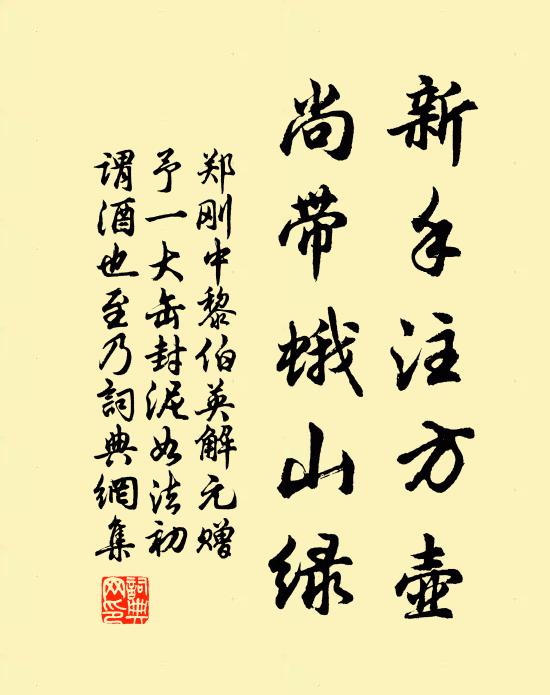 新手注方壶
尚带蛾山绿
郑刚中黎伯英解元赠
予一大缶封泥如法初
谓酒也至乃詞典網集